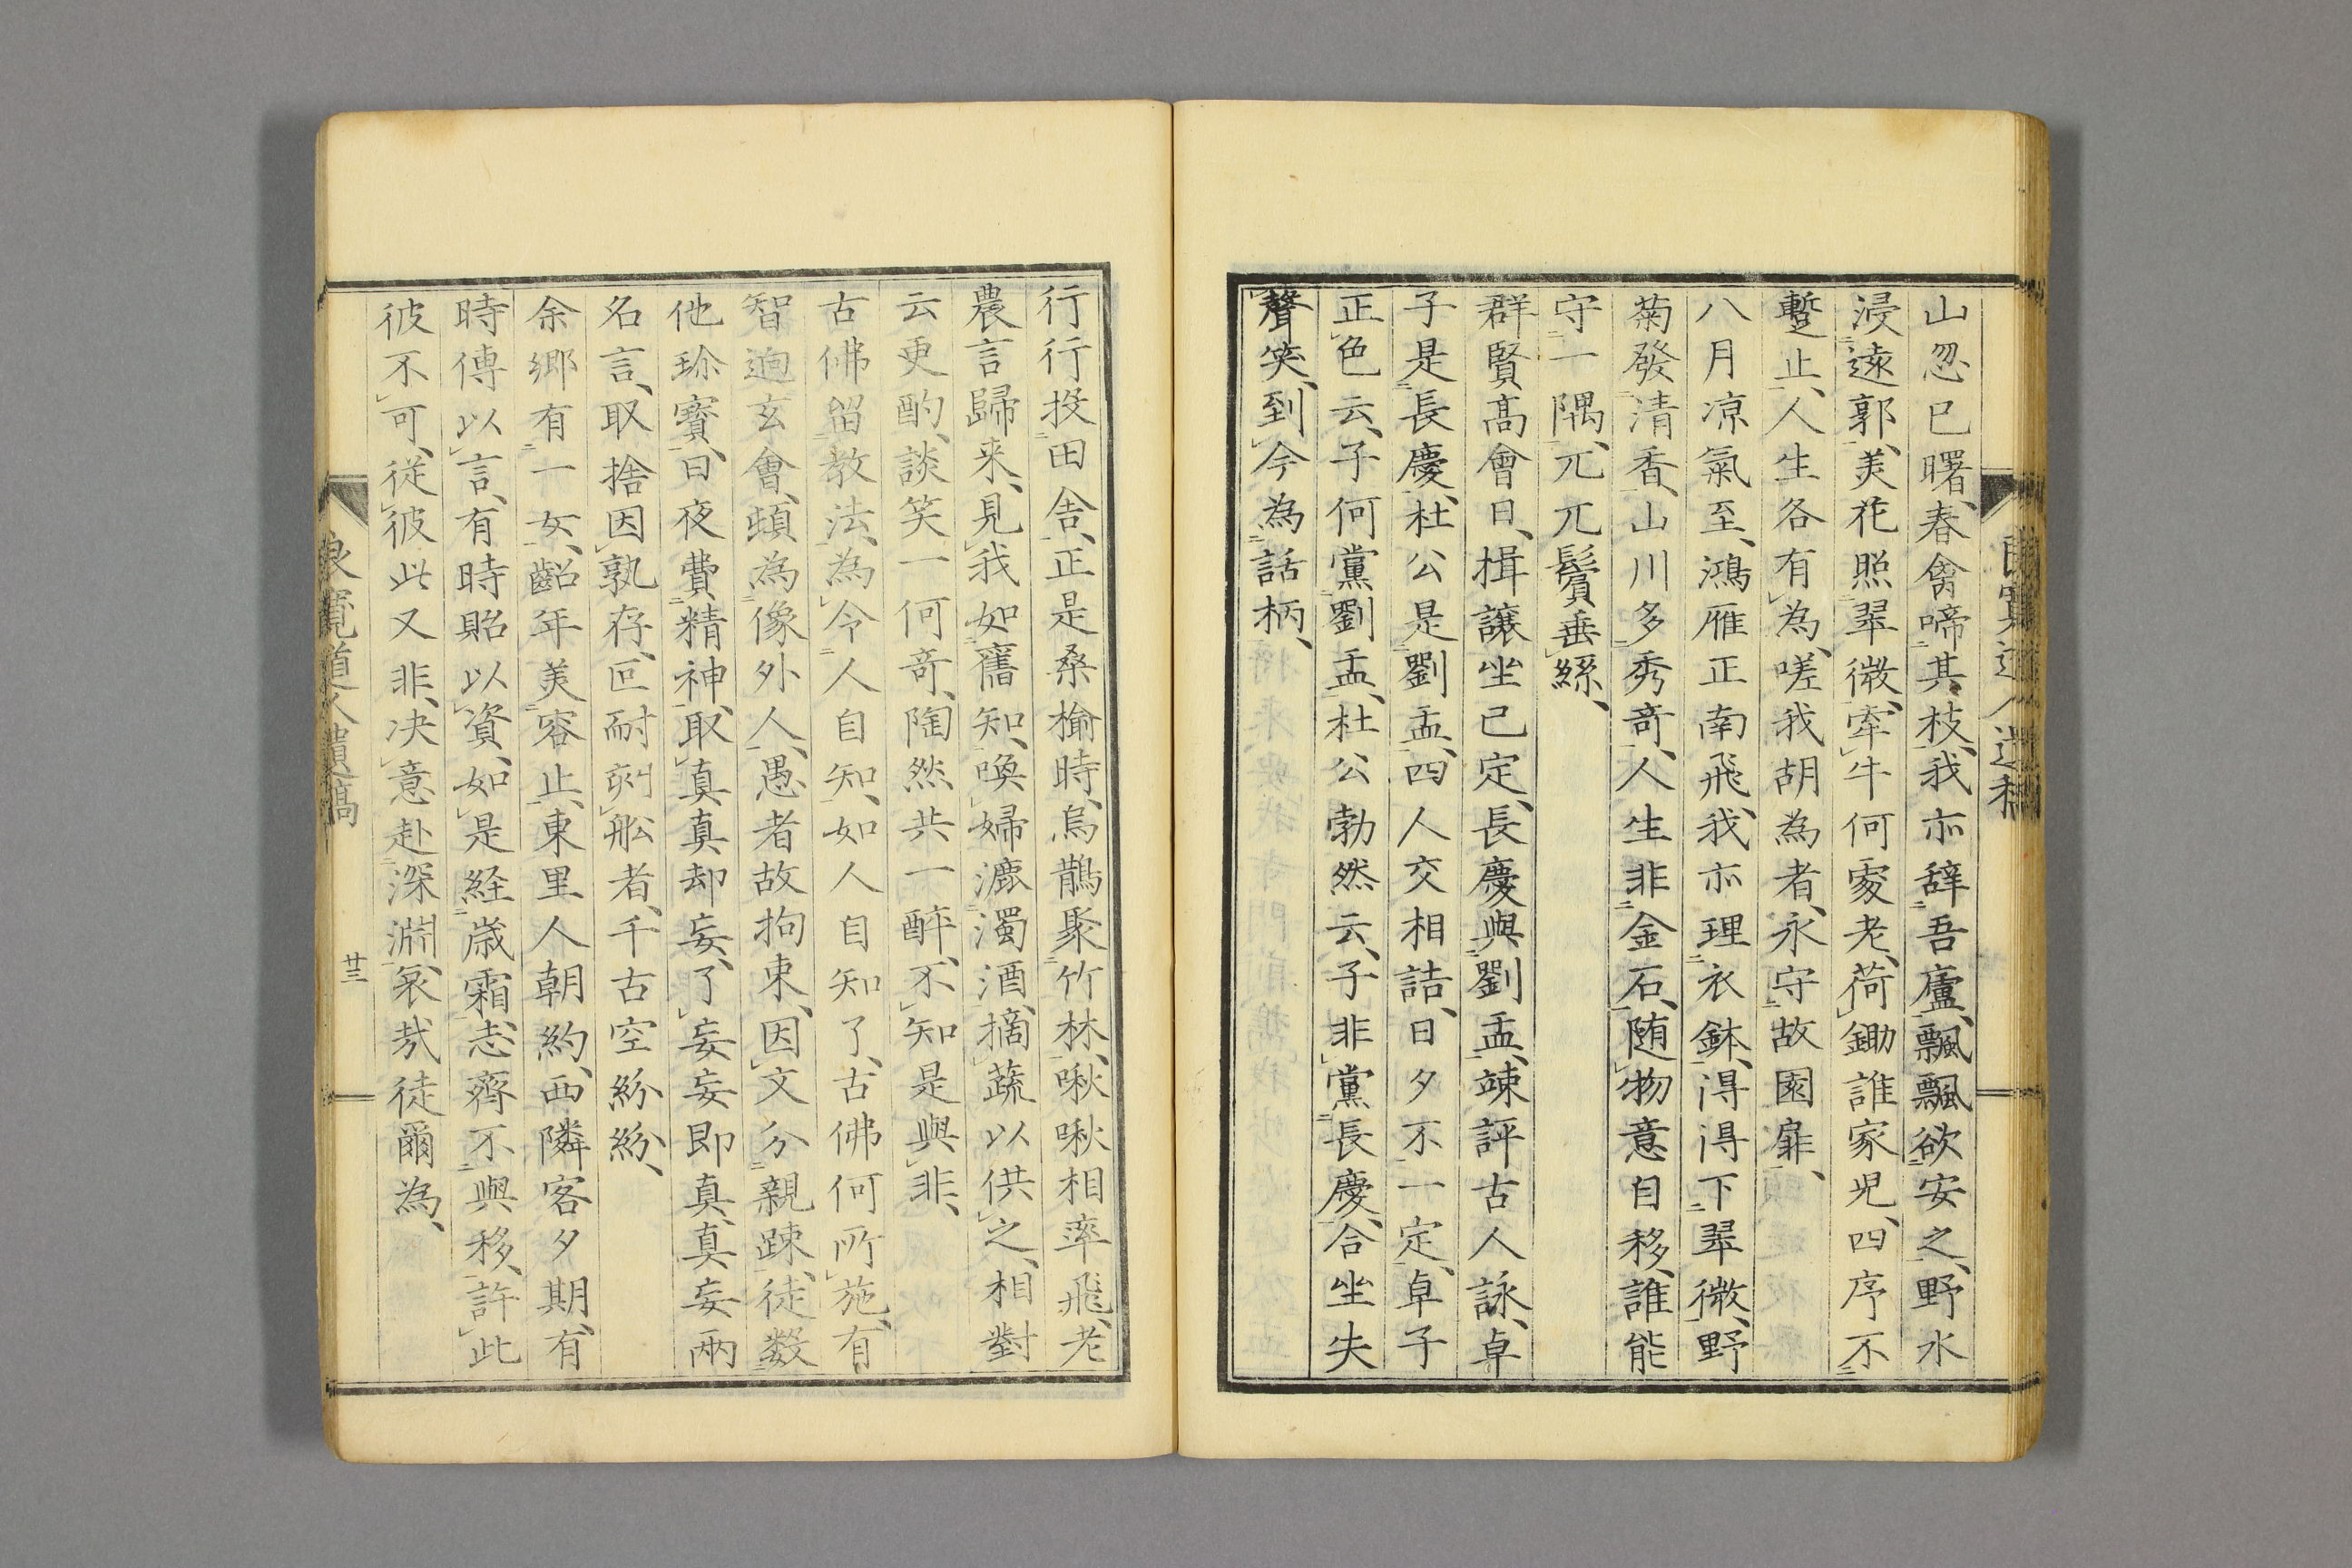 山忽已曙、春禽啼其枝、我亦辞吾廬、飄飄欲安之、野水
浸遠郭、美花照翠微、牽牛何處老、荷鋤誰家児、四序不
蹔止、人生各有為、嗟我胡為者、永守故園扉、
八月凉氣至、鴻雁正南飛、我亦理衣鉢、得得下翠微、野
菊發清香、山川多秀奇、人生非金石、随物意自移、誰能
守一隅、兀兀鬢垂絲、
群賢髙會日、揖譲坐已定、長慶與劉盂、竦評古人詠、卓
子是長慶、杜公是劉盂、四人交相詰、日夕不一定、卓子
正色云、子何黨劉盂、杜公勃然云、子非黨長慶、合坐失
聲笑、到今為話柄、
行行投田舎、正是桑榆時、烏鵲聚竹林、啾啾相率飛、老
農言歸来、見我如舊知、喚婦漉濁酒、摘蔬以供之、相對
云更酌、談笑一何奇、陶然共一醉、不知是與非、
古佛留教法、為令人自知、如人自知了、古佛何所施、有
智迥玄會、頓為像外人、愚者故拘束、因文分親踈、徒数
他珎寳、日夜費精神、取真真却妄、了妄妄即真、真妄兩
名言、取捨因孰存、叵耐刻舩者、千古空紛紛、
余郷有一女、齠年美容止、東里人朝約、西隣客夕期、有
時傳以言、有時貽以資、如是経歳霜、志齊不與移、許此
彼不可、従彼此又非、决意赴深淵、哀哉徒爾為、
良寛道人遺稿
廿三